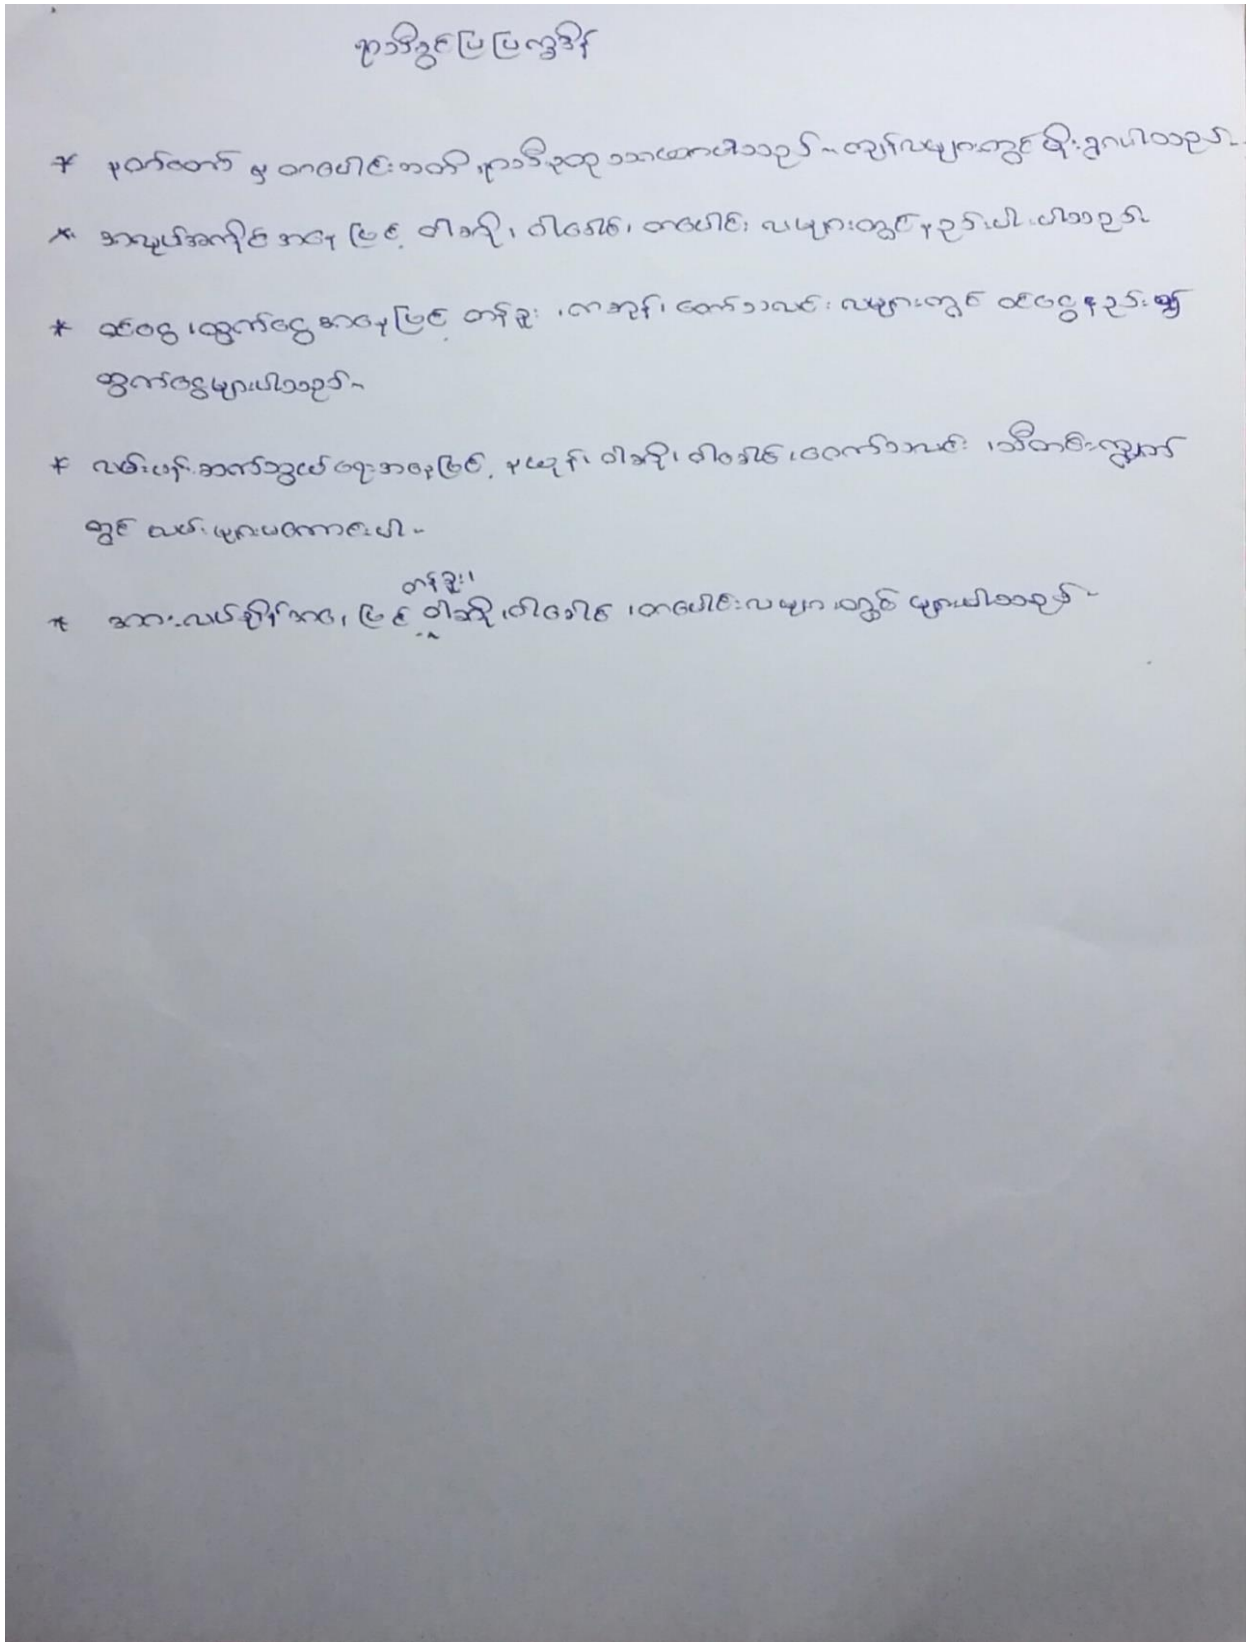 ရာသီခွင်ပြပြက္ခဒိန်
* နတ်တော် မှ တပေါင်းအထိ ရာသီဥတု သာယာပါသည်။ ကျန်လများတွင် မိုးရွာပါသည်။
* အလုပ်အကိုင် အနေဖြင့် ဝါဆို၊ ဝါခေါင်၊ တပေါင်း လများတွင် နည်းပါးပါသည်။
* ဝင်ငွေ၊ ထွက်ငွေ အနေဖြင့် တန်ခူး၊ ကဆုန်၊ တော်သလင်း လများတွင် ဝင်ငွေနည်း၍
ထွက်ငွေများပါသည်။
* လမ်းပန်းဆက်သွယ်ရေးအနေဖြင့် နယုန်၊ ဝါဆို၊ ဝါခေါင်၊ တော်သလင်း၊ သီတင်းကျွတ်
တွင် လမ်းများမကောင်းပါ။
* အားလပ်ချိန်အနေဖြင့် တန်ခူး၊ ဝါဆို၊ ဝါခေါင်၊ တပေါင်းလများတွင် များပါသည်။